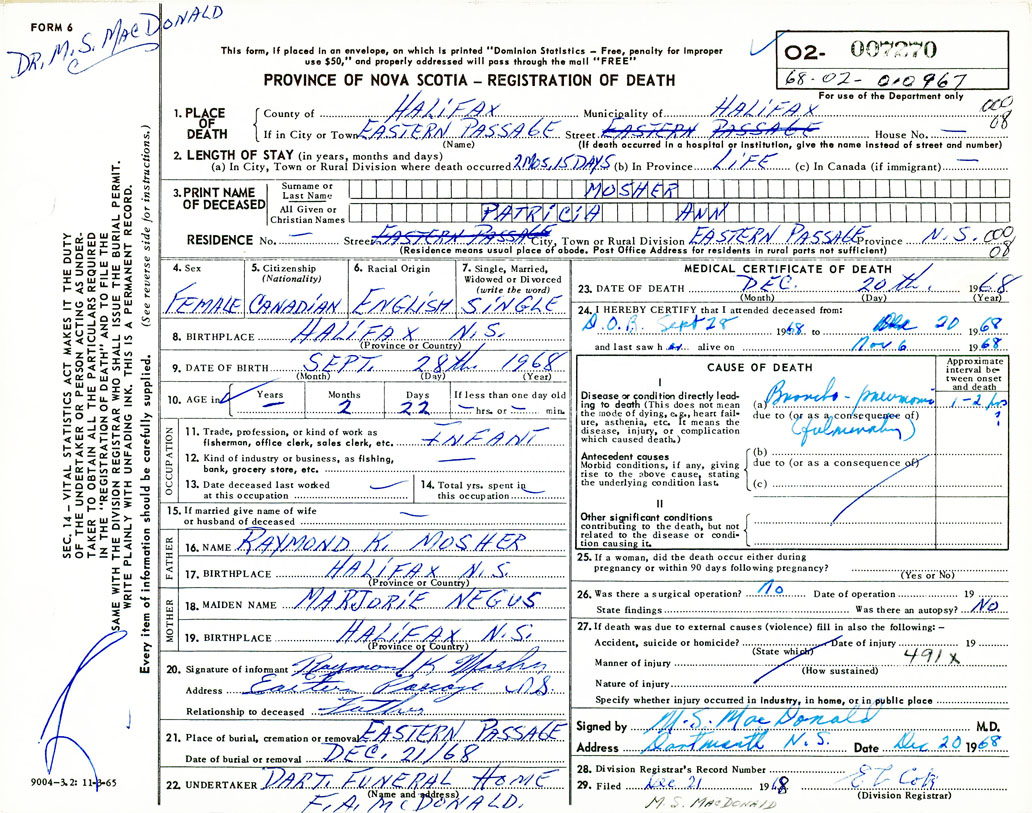 FORM 6
DR. M. S. MACDONALD
This form, if placed in an envelope, on which is printed "Dominion Statistics – Free, penalty for improper
use $50," and properly addressed will pass through the mail "FREE"
PROVINCE OF NOVA SCOTIA – REGISTRATION OF DEATH
02- 007270
68-02-000967
For use of the Department only
1. PLACE OF DEATH
County of HALIFAX Municipality of HALIFAX 000
If in City or Town EASTERN PASSAGE Street EASTERN PASSAGE House No. — 08
(Name) (If death occurred in a hospital or institution, give the name instead of street and number)
2. LENGTH OF STAY (in years, months and days)
(a) In City, Town or Rural Division where death occurred 2 MOS, 15 DAYS (b) In Province LIFE (c) In Canada (if immigrant) —
3. PRINT NAME OF DECEASED
Surname or Last Name MOSHER
All Given or Christian Names PATRICIA ANN
RESIDENCE No. — Street EASTERN PASSAGE City, Town or Rural Division EASTERN PASSAGE Province N.S. 000
(Residence means usual place of abode. Post Office Address for residents in rural parts not sufficient) 08
4. Sex FEMALE
5. Citizenship (Nationality) CANADIAN
6. Racial Origin ENGLISH
7. Single, Married, Widowed or Divorced (write the word) SINGLE
8. BIRTHPLACE HALIFAX N.S.
(Province or Country)
9. DATE OF BIRTH SEPT. 28th 1968
(Month) (Day) (Year)
10. AGE in Years — Months 2 Days 22 If less than one day old — hrs. or — min.
OCCUPATION
11. Trade, profession, or kind of work as
fisherman, office clerk, sales clerk, etc. INFANT
12. Kind of industry or business, as fishing,
bank, grocery store, etc. —
13. Date deceased last worked
at this occupation —
14. Total yrs. spent in
this occupation —
15. If married give name of wife
or husband of deceased —
FATHER
16. NAME RAYMOND K. MOSHER
17. BIRTHPLACE HALIFAX N.S.
(Province or Country)
MOTHER
18. MAIDEN NAME MARJORIE NEGUS
19. BIRTHPLACE HALIFAX N.S.
(Province or Country)
20. Signature of informant Raymond K Mosher
Address Eastern Passage N.S.
Relationship to deceased Father
21. Place of burial, cremation or removal EASTERN PASSAGE
Date of burial or removal DEC. 21/68
22. UNDERTAKER DART. FUNERAL HOME
(Name and address)
F.A. McDONALD.
MEDICAL CERTIFICATE OF DEATH
23. DATE OF DEATH DEC. 20th. 1968
(Month) (Day) (Year)
24. I HEREBY CERTIFY that I attended deceased from:
D.O.B. Sept 28 1968 to Dec 20 1968
and last saw her alive on Nov 6 1968
CAUSE OF DEATH
Approximate interval between onset and death
I
Disease or condition directly leading to death (This does not mean the mode of dying, e.g., heart failure, asthenia, etc. It means the disease, injury, or complication which caused death.)
(a) Broncho-pneumonia 1-2 hrs ?
due to (or as a consequence of)
(fulminating)
Antecedent causes
Morbid conditions, if any, giving rise to the above cause, stating the underlying condition last.
(b)
due to (or as a consequence of)
(c)
II
Other significant conditions
contributing to the death, but not related to the disease or condition causing it.
25. If a woman, did the death occur either during
pregnancy or within 90 days following pregnancy?
(Yes or No)
26. Was there a surgical operation? No Date of operation 19
State findings Was there an autopsy? No
27. If death was due to external causes (violence) fill in also the following: –
Accident, suicide or homicide? Date of injury 19
(State which) 491x
Manner of injury
(How sustained)
Nature of injury
Specify whether injury occurred in Industry, in home, or in public place
Signed by M.S. MacDonald M.D.
Address Dartmouth N.S. Date Dec 20 1968
28. Division Registrar's Record Number
29. Filed Dec 21 1968
(Division Registrar)
M.S. MACDONALD
SEC. 14 – VITAL STATISTICS ACT MAKES IT THE DUTY
OF THE UNDERTAKER OR PERSON ACTING AS UNDER-
TAKER TO OBTAIN ALL THE PARTICULARS REQUIRED
IN THE "REGISTRATION OF DEATH" AND TO FILE THE
SAME WITH THE DIVISION REGISTRAR WHO SHALL ISSUE THE BURIAL PERMIT.
WRITE PLAINLY WITH UNFADING INK. THIS IS A PERMANENT RECORD.
Every item of information should be carefully supplied. (See reverse side for instructions.)
9004–3.2: 11-3-65